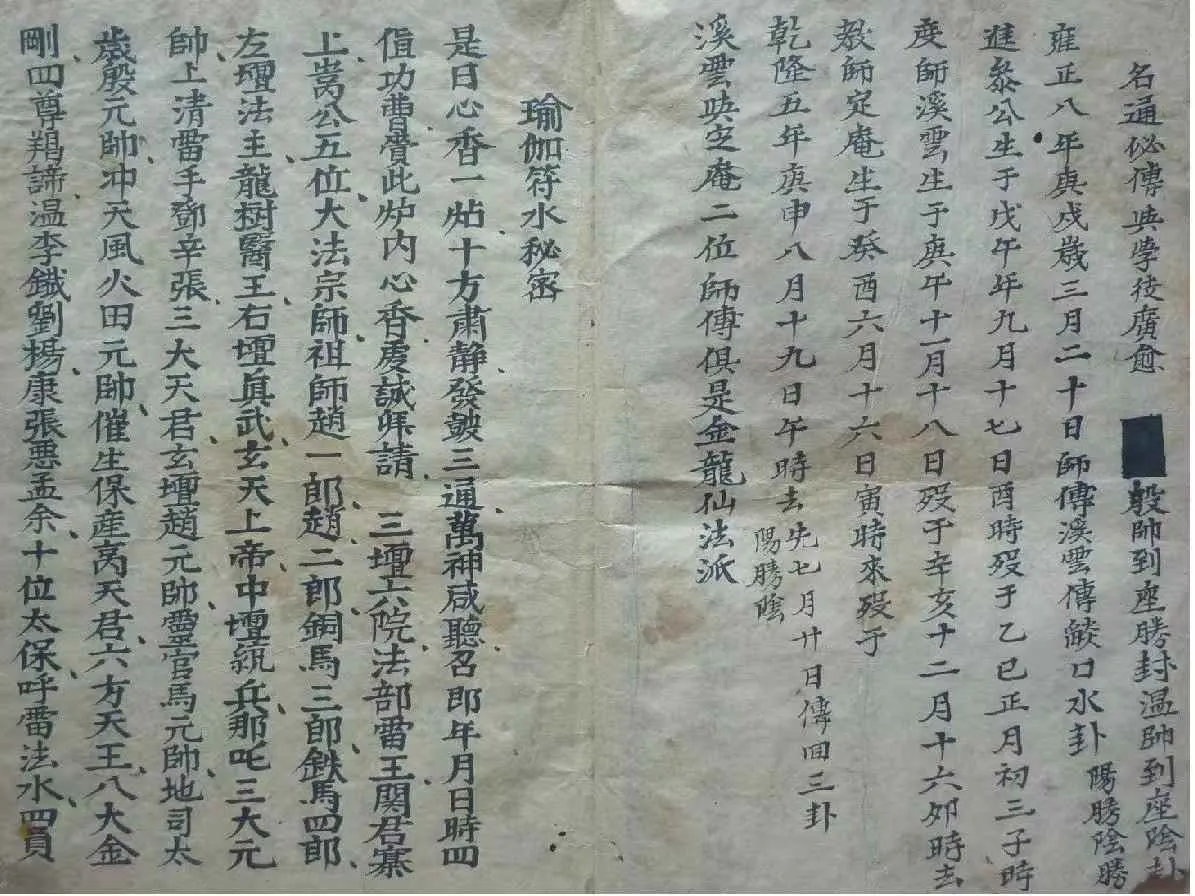 名通秘傳與學後廣愈 殷帥到座勝封温帥到座陰卦
雍正八年庚戌歲三月二十日師傳溪雲傳燄口水卦 陽勝陰勝
進泰公生于戊午年九月十七日酉時歿于乙巳正月初三子時
度師溪雲生于庚午十一月十八日歿于辛亥十二月十六夘時去
教師定庵生于癸酉六月十六日寅時來歿于
乾隆五年庚申八月十九日午時去先七月廿日傳回三卦
陽勝陰
溪雲與定庵二位師傅俱是金龍仙法派
瑜伽符水秘密
是日心香一炷十方肅静發皷三通萬神咸聽召即年月日時四
值功曹賫此炉内心香虔誠拜請 三壇六院法部雷王関君寨
上嵩公五位大法宗師祖師趙一郎趙二郎銅馬三郎鉄馬四郎
左壇法主龍樹醫王右壇真武玄天上帝中壇統兵那吒三大元
帥上清雷手鄧辛張三大天君玄壇趙元帥靈官馬元帥地司太
歲殷元帥冲天風火田元帥催生保産萬天君六方天王八大金
剛四尊羯諦温李鐵劉楊康張惡孟余十位太保呼雷法水四員